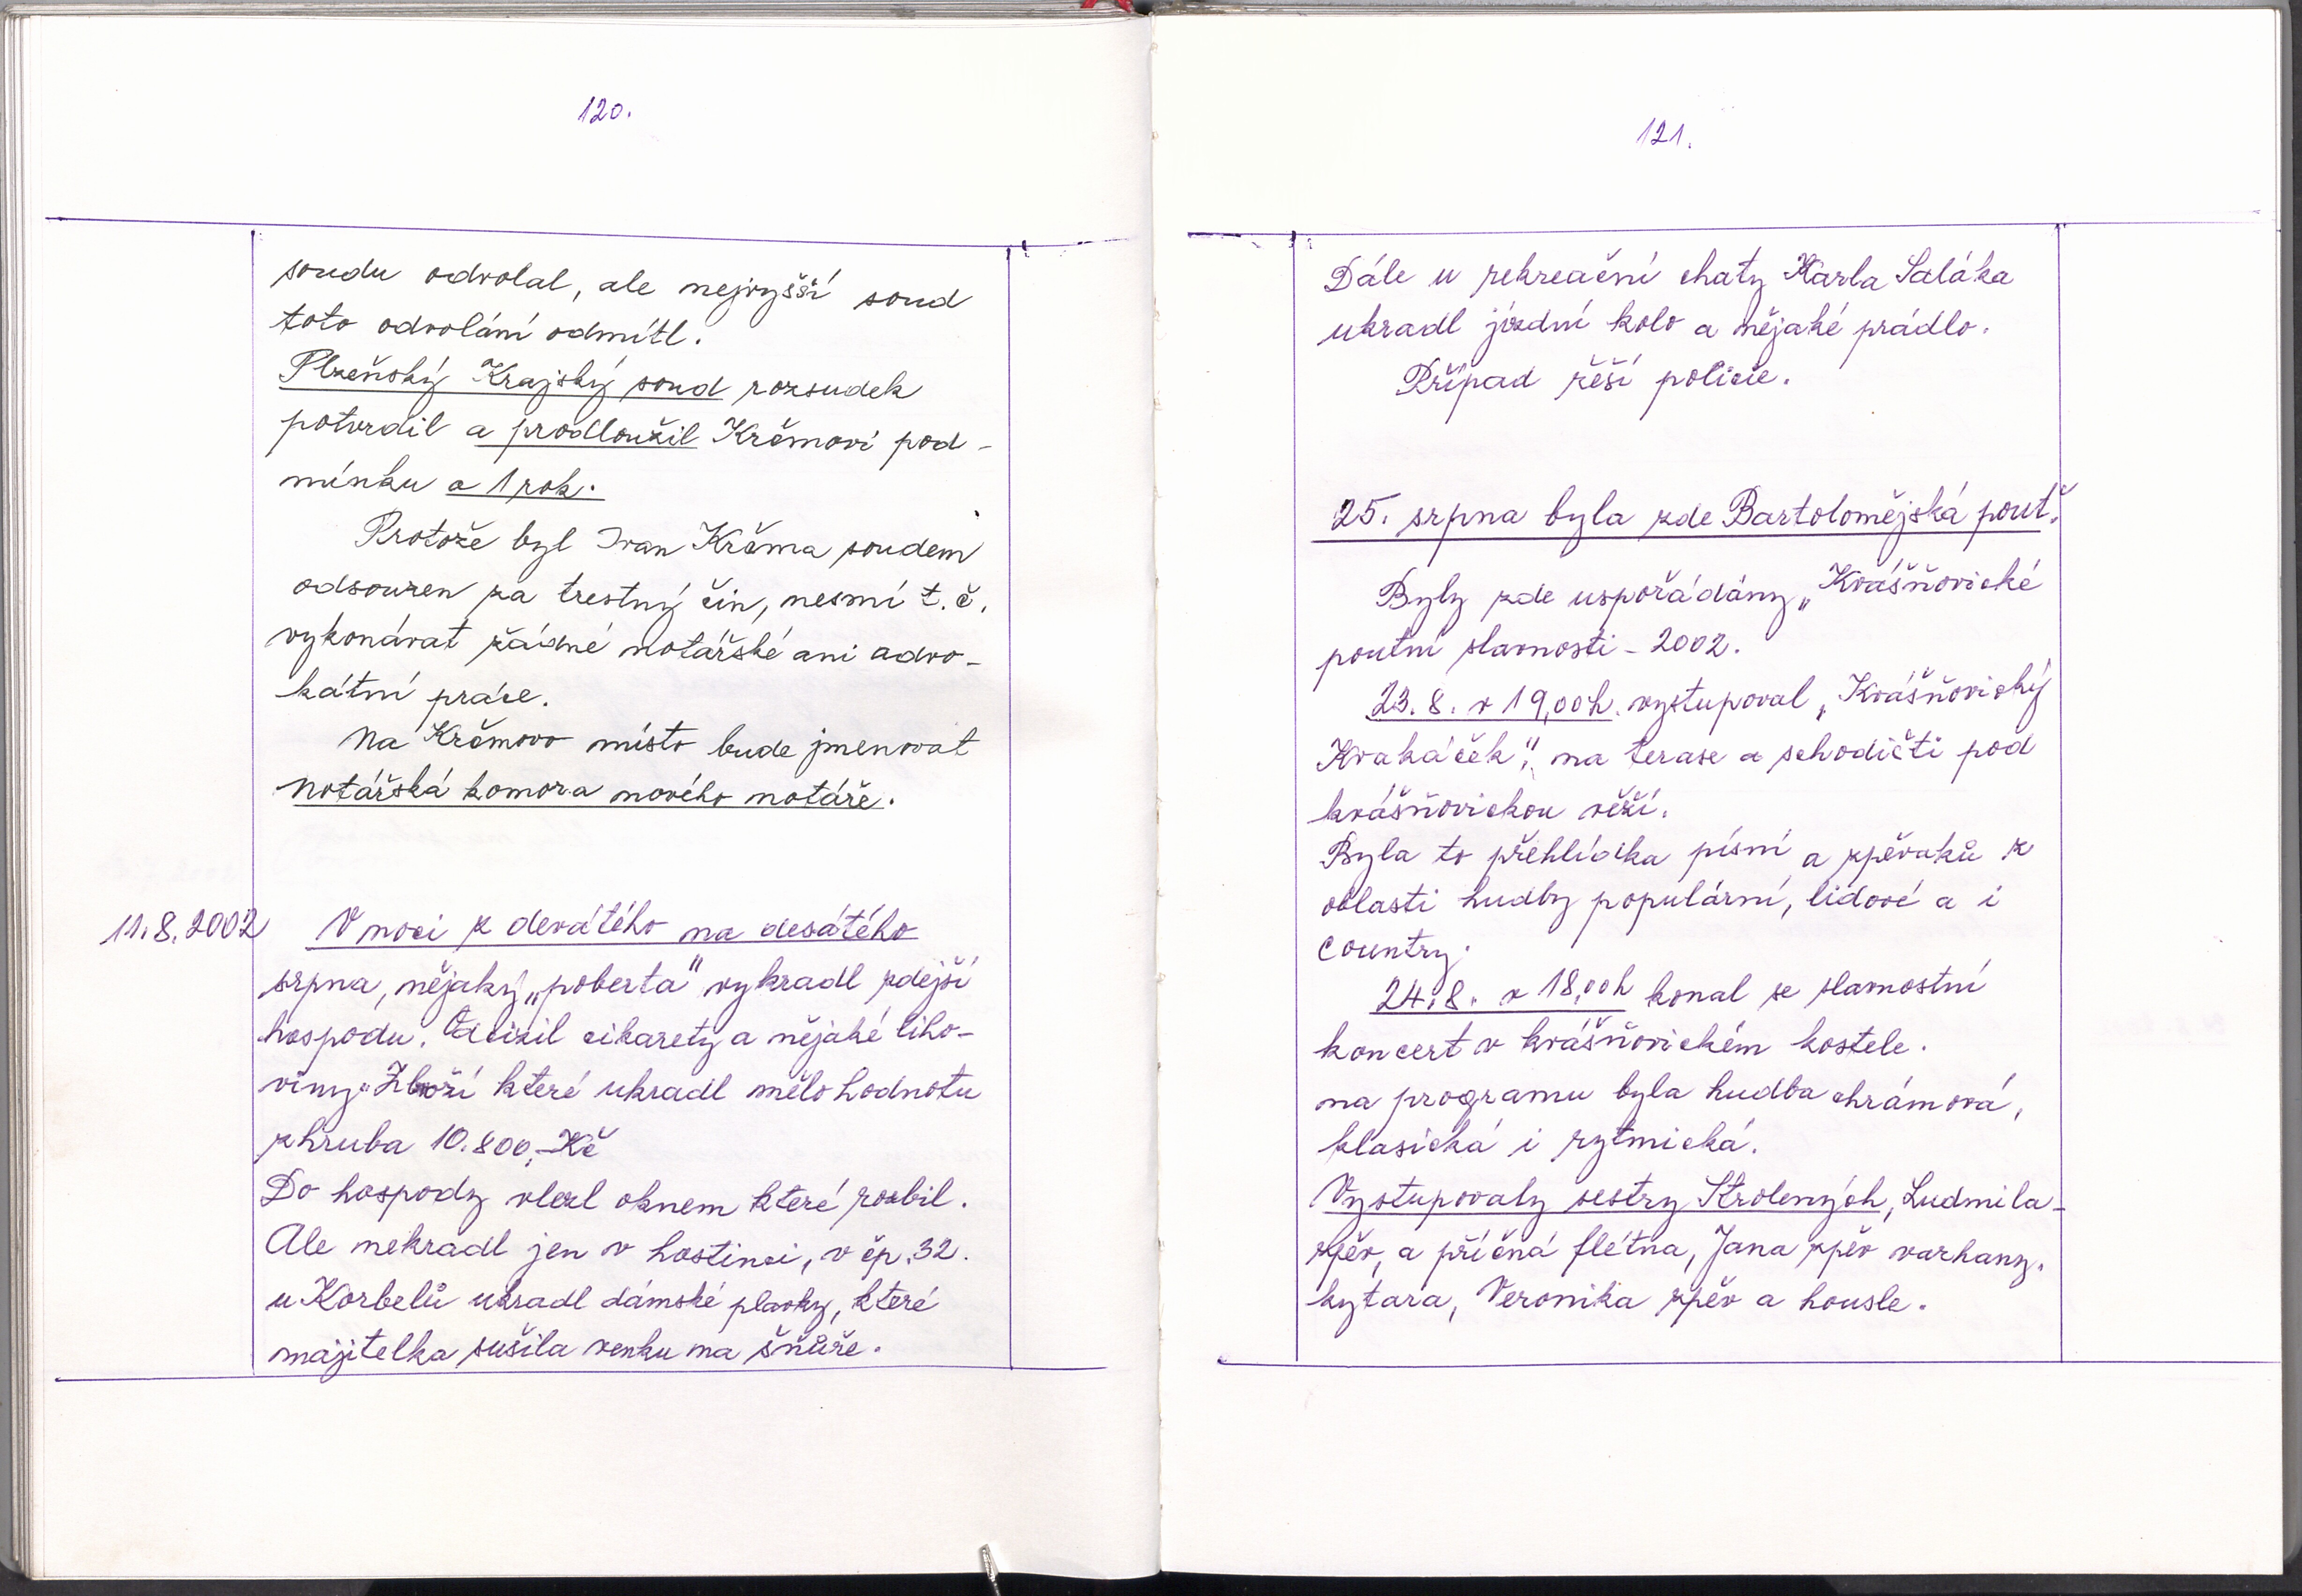 120.
soudu odvolal, ale nejvyšší soud
toto odvolání odmítl.
Plzeňský Krajský soud rozsudek
potvrdil a prodloužil Krčmovi pod-
mínku o 1 rok.
Protože byl Ivan Krčma soudem
odsouzen za trestný čin, nesmí t.č.
vykonávat žádné notářské ani advo-
kátní práce.
Na Krčmovo místo bude jmenovat
Notářská komora nového notáře.
11.8.2002 V noci z devátého na desátého
srpna, nějaký „poberta" vykradl zdejší
hospodu. Odcizil cikarety a nějaké liho-
viny. Zboží které ukradl mělo hodnotu
zhruba 10.800,-Kč
Do hospody vlezl oknem které rozbil.
Ale nekradl jen v hostinci, v čp. 32.
u Korbelů ukradl dámské plavky, které
majitelka sušila venku na šňůře.
121.
Dále u rekreační chaty Karla Saláka
ukradl jízdní kolo a nějaké prádlo.
Případ řeší policie.
25. srpna byla zde Bartolomějská pouť.
Byly zde uspořádány „Kvášňovické
poutní slavnosti - 2002.
23.8. v 19,00h. vystupoval „Kvášňovický
Kvakáček", na terase a schodičti pod
kvášňovickou věží.
Byla to přehlídka písní a zpěvaků z
oblasti hudby populární, lidové a i
country.
24.8. v 18,00h konal se slavnostní
koncert v kvášňovickém kostele.
na programu byla hudba chrámová,
klasická i rytmická.
Vystupovaly sestry Strolených, Ludmila-
zpěv, a příčná flétna, Jana zpěv varhany.
kytara, Veronika zpěv a housle.